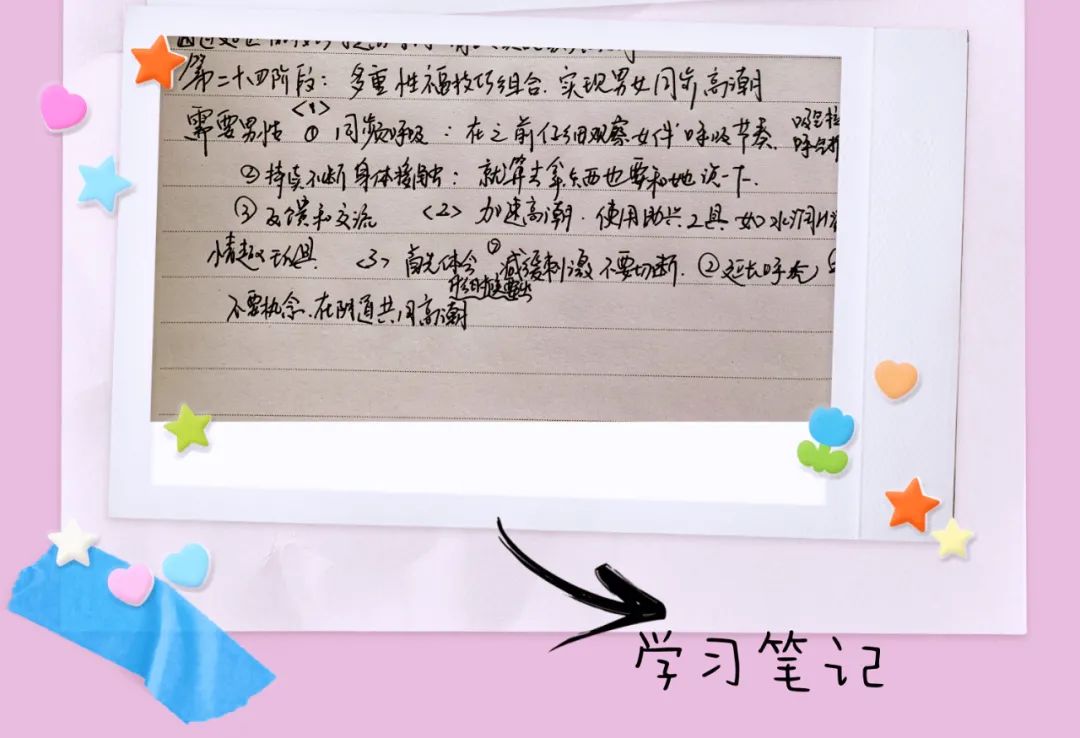 第二十四阶段：多重性福技巧组合.实现男女同步高潮
<1>
需要男性 ① 同频呼吸：在之前仔细观察女伴呼吸节奏.
②持续不断身体接触：就算去拿东西也要和她说一下.
③反馈和交流 <2> 加速高潮.使用助兴工具 如水润
情趣玩具 <3> 首先体会 ① 减缓刺激 不要切断.②延长呼吸
不要执念.在阴道共同高潮
学习笔记